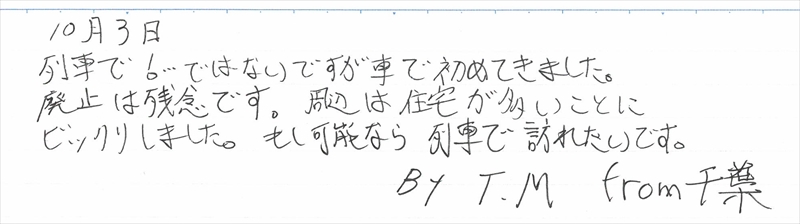 10月3日
列車で6…ではないですが車で初めてきました。
廃止は残念です。周辺は住宅が多いことに
ビックリしました。もし可能なら列車で訪れたいです。
By T.M from千葉